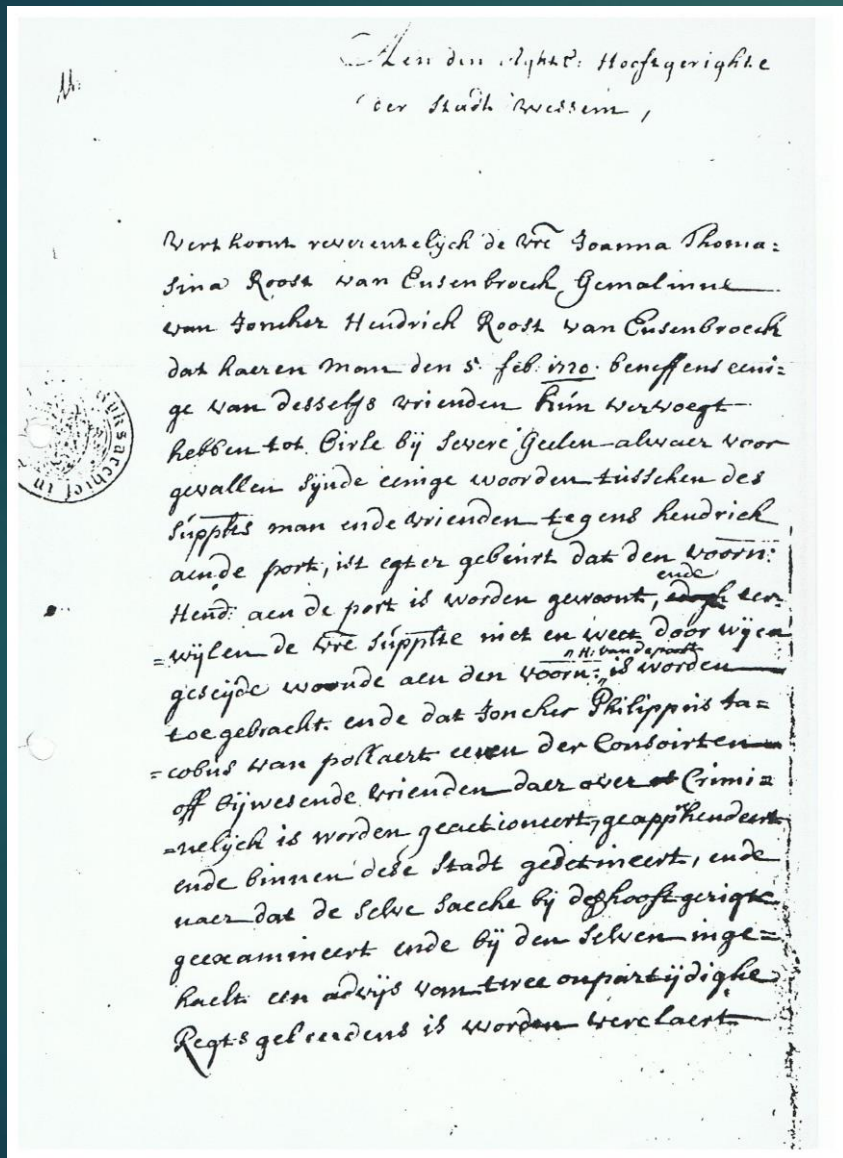 Aen den Hooftgerighte
der Stadt Wessem,
Vert hoont reverentelijck de vre Joanna Thoma=
sina Roost van Eusenbroeck Gemalinne
van Joncker Hendrick Roost van Eusenbroeck
dat haeren man den 5. feb. 1720. beneffens eeni=
ge van desselfs vrienden hun vervoegt
hebben tot Birle bij Severe Geelen alwaer voor
gevallen sijnde eenige woorden tusschen des
Supplts man ende vrienden tegens hendrick
aende port, ist egter gebeurt dat den voorn:
ende
Hend: aen de port is worden gewont, der=
=wijlen de vre Supplte niet en weet door wijen
H: van de port
geseijde wonde aen den voorn: is worden
toegebracht. ende dat Joncker Philippus Ja=
=cobus van pollaert eenen der Consoirten
off bijwesende vrienden daer over Crimi=
=nelijck is worden geactioneert, geapphendeert
ende binnen dese Stadt gedetineert, ende
naer dat de selve saecke bij hooftgerigte
geexamineert ende bij den selven inge=
haelt een advijs van twee onpartijdighe
Regtsgeleerdens is worden verclaert
rijksarchief in